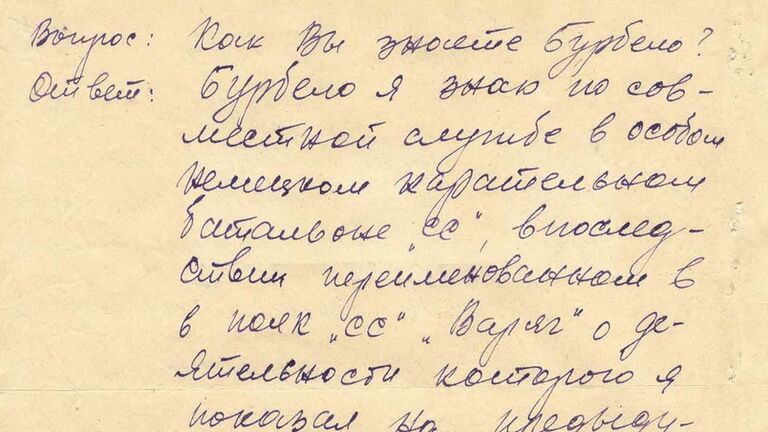 Вопрос: Как Вы знаете Бурбело?
Ответ: Бурбело я знаю по сов-
местной службе в особом
немецком карательном
батальоне „СС“, впослед-
ствии переименованном в
в полк „СС“ „Варяг“ о де-
ятельности которого я
показал на предыду-